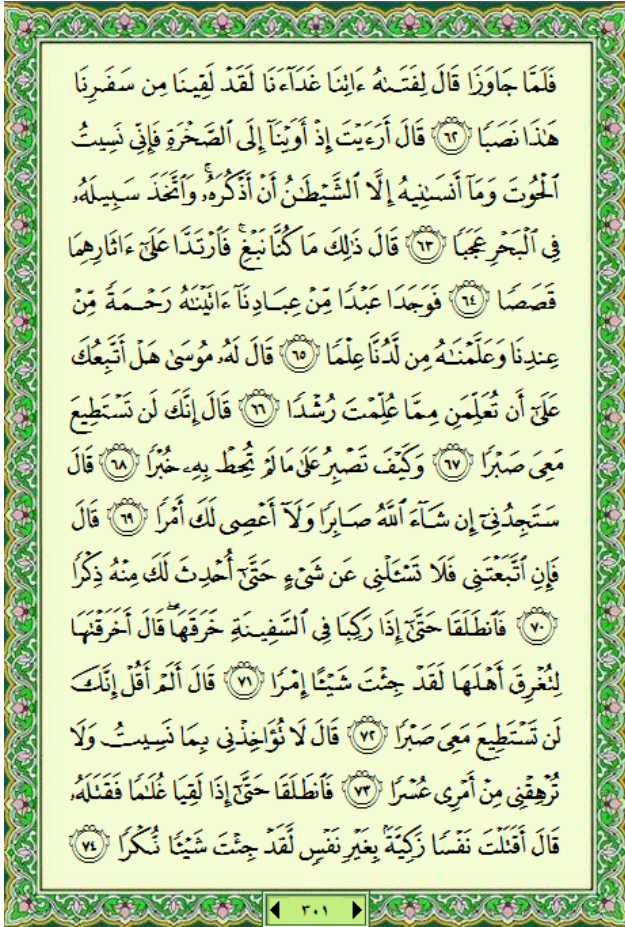 فَلَمَّا جَاوَزَا قَالَ لِفَتَىٰهُ ءَاتِنَا غَدَآءَنَا لَقَدْ لَقِينَا مِن سَفَرِنَا
هَٰذَا نَصَبًا ﴿٦٢﴾ قَالَ أَرَءَيْتَ إِذْ أَوَيْنَآ إِلَى ٱلصَّخْرَةِ فَإِنِّى نَسِيتُ
ٱلْحُوتَ وَمَآ أَنسَىٰنِيهُ إِلَّا ٱلشَّيْطَٰنُ أَنْ أَذْكُرَهُۥ ۚ وَٱتَّخَذَ سَبِيلَهُۥ
فِى ٱلْبَحْرِ عَجَبًا ﴿٦٣﴾ قَالَ ذَٰلِكَ مَا كُنَّا نَبْغِ ۚ فَٱرْتَدَّا عَلَىٰٓ ءَاثَارِهِمَا
قَصَصًا ﴿٦٤﴾ فَوَجَدَا عَبْدًا مِّنْ عِبَادِنَآ ءَاتَيْنَٰهُ رَحْمَةً مِّنْ
عِندِنَا وَعَلَّمْنَٰهُ مِن لَّدُنَّا عِلْمًا ﴿٦٥﴾ قَالَ لَهُۥ مُوسَىٰ هَلْ أَتَّبِعُكَ
عَلَىٰٓ أَن تُعَلِّمَنِ مِمَّا عُلِّمْتَ رُشْدًا ﴿٦٦﴾ قَالَ إِنَّكَ لَن تَسْتَطِيعَ
مَعِىَ صَبْرًا ﴿٦٧﴾ وَكَيْفَ تَصْبِرُ عَلَىٰ مَا لَمْ تُحِطْ بِهِۦ خُبْرًا ﴿٦٨﴾ قَالَ
سَتَجِدُنِىٓ إِن شَآءَ ٱللَّهُ صَابِرًا وَلَآ أَعْصِى لَكَ أَمْرًا ﴿٦٩﴾ قَالَ
فَإِنِ ٱتَّبَعْتَنِى فَلَا تَسْـَٔلْنِى عَن شَىْءٍ حَتَّىٰٓ أُحْدِثَ لَكَ مِنْهُ ذِكْرًا
﴿٧٠﴾ فَٱنطَلَقَا حَتَّىٰٓ إِذَا رَكِبَا فِى ٱلسَّفِينَةِ خَرَقَهَا ۖ قَالَ أَخَرَقْتَهَا
لِتُغْرِقَ أَهْلَهَا لَقَدْ جِئْتَ شَيْـًٔا إِمْرًا ﴿٧١﴾ قَالَ أَلَمْ أَقُلْ إِنَّكَ
لَن تَسْتَطِيعَ مَعِىَ صَبْرًا ﴿٧٢﴾ قَالَ لَا تُؤَاخِذْنِى بِمَا نَسِيتُ وَلَا
تُرْهِقْنِى مِنْ أَمْرِى عُسْرًا ﴿٧٣﴾ فَٱنطَلَقَا حَتَّىٰٓ إِذَا لَقِيَا غُلَٰمًا فَقَتَلَهُۥ
قَالَ أَقَتَلْتَ نَفْسًا زَكِيَّةًۢ بِغَيْرِ نَفْسٍ لَّقَدْ جِئْتَ شَيْـًٔا نُّكْرًا ﴿٧٤﴾
٣٠١